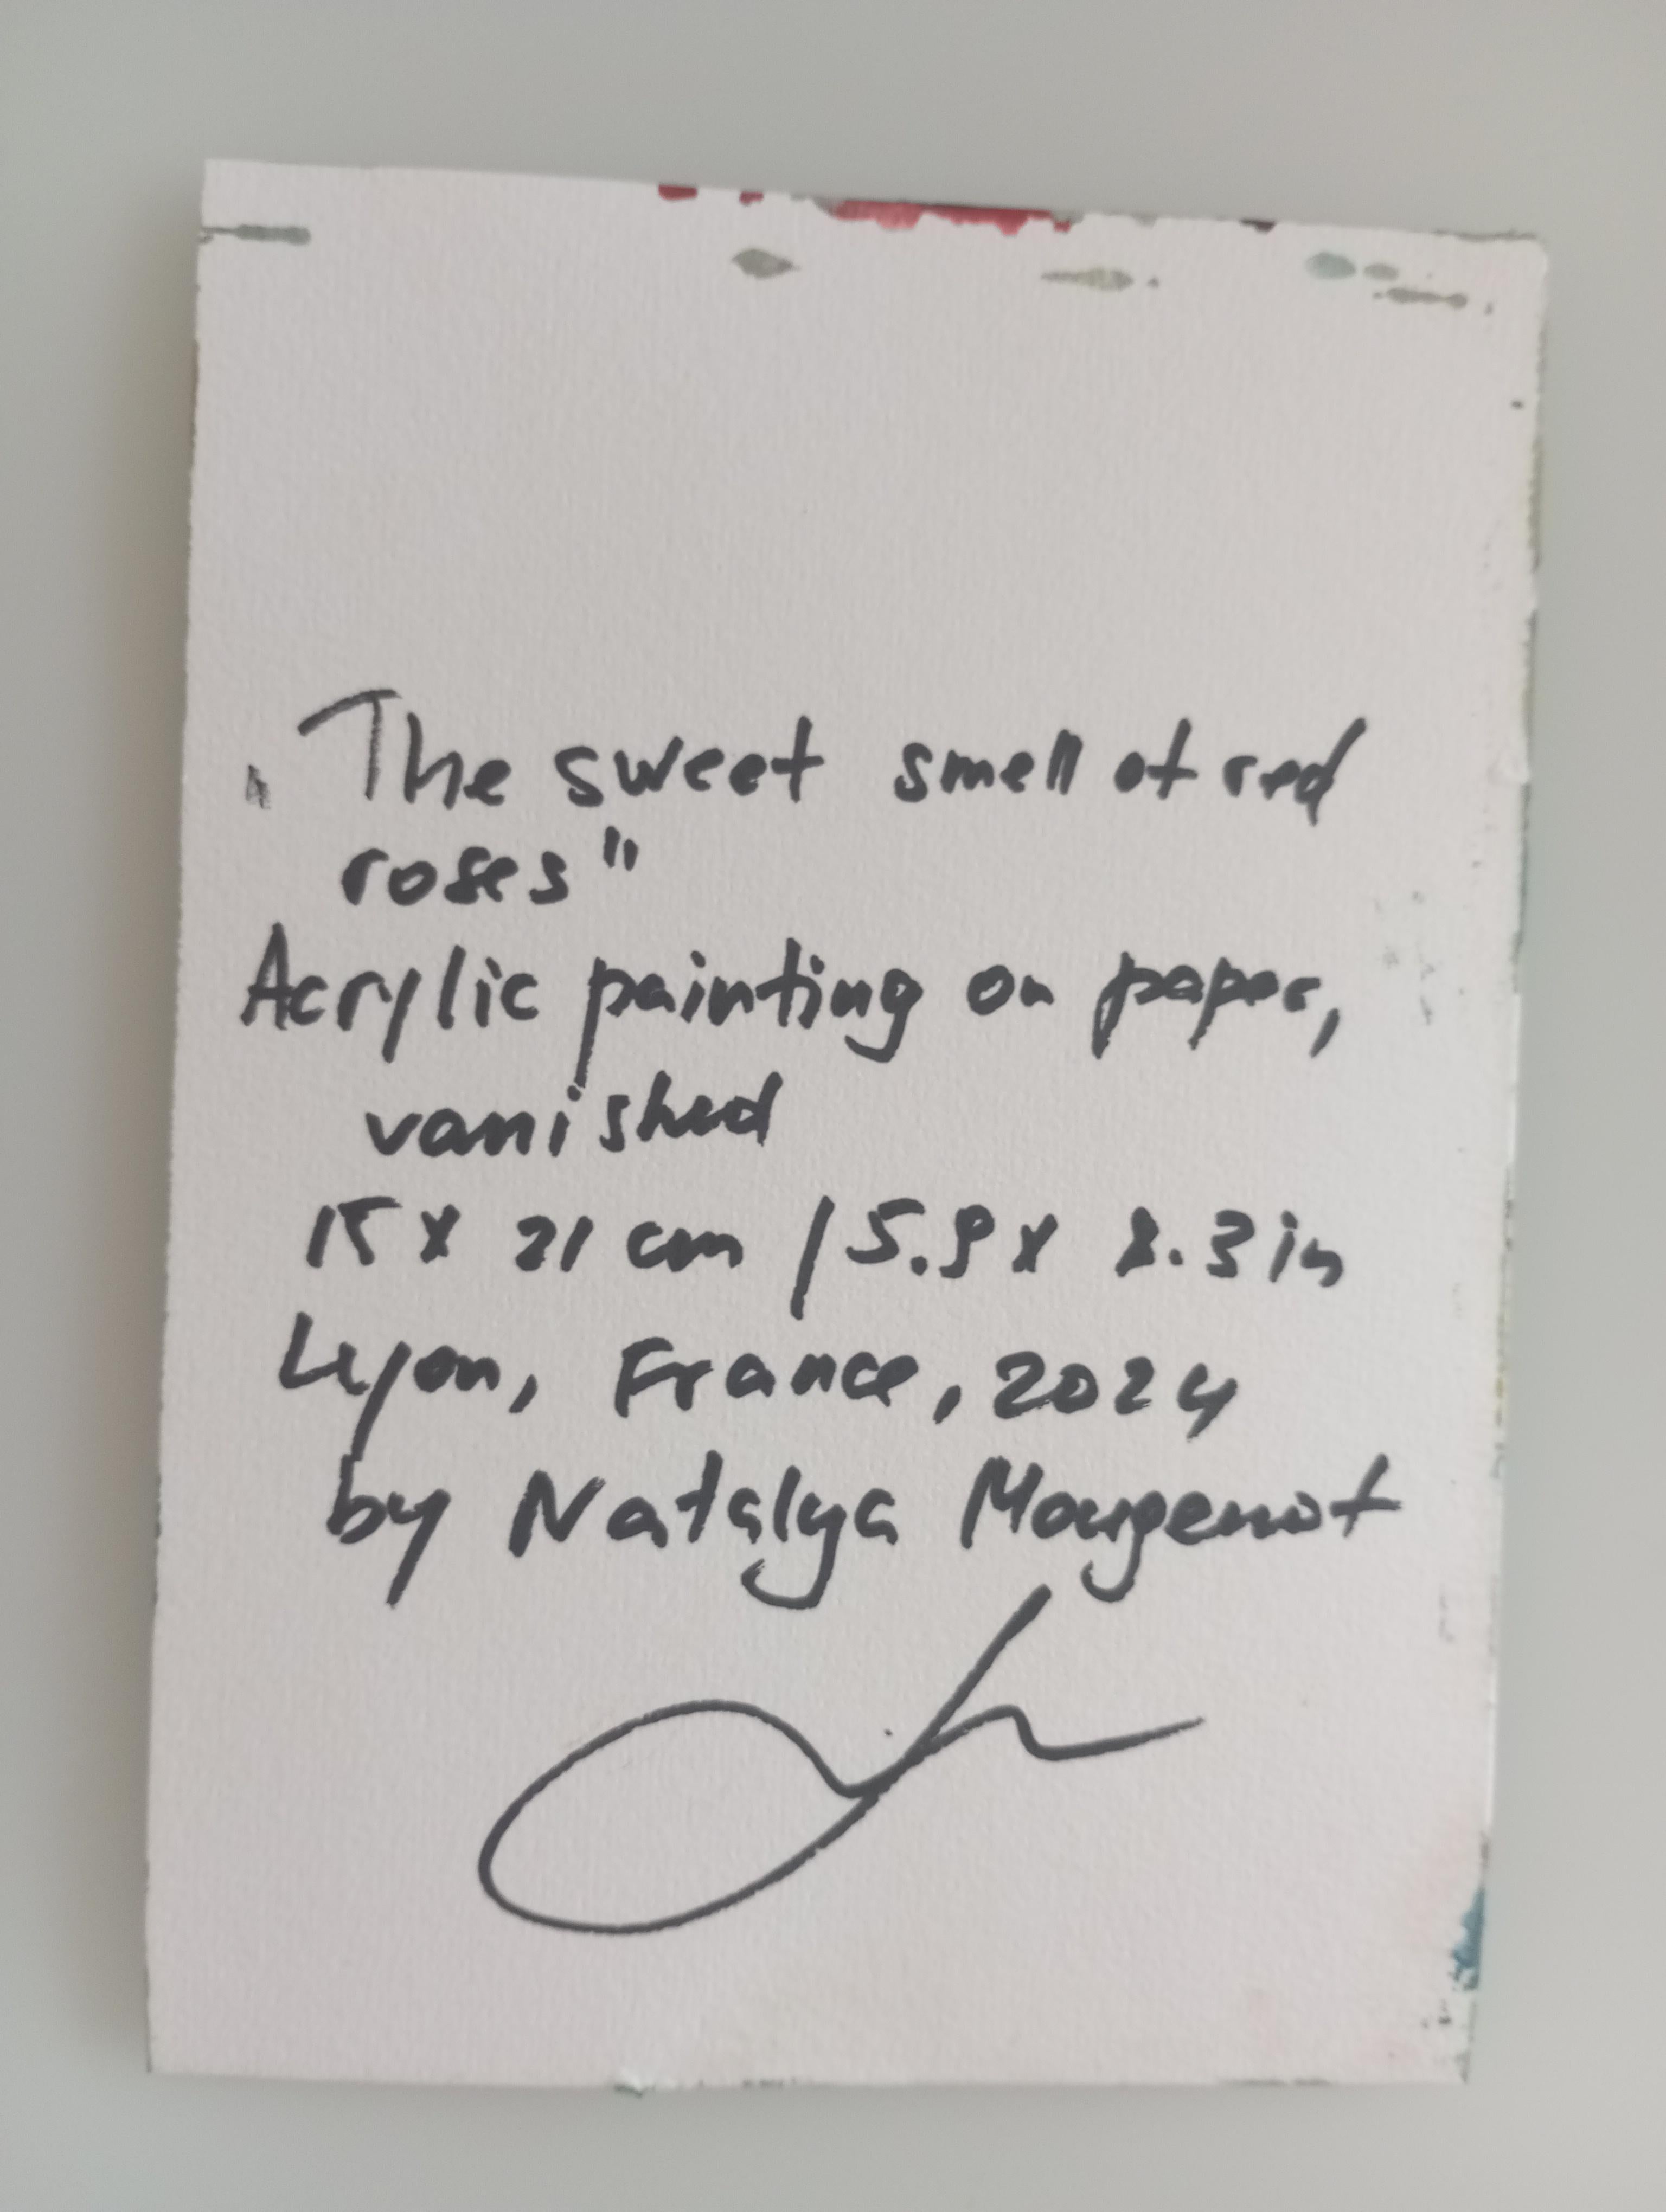 „The sweet smell of red
roses"
Acrylic painting on paper,
vanished
15 x 21 cm / 5.9 x 8.3 in
Lyon, France, 2024
by Natalya Mougenot